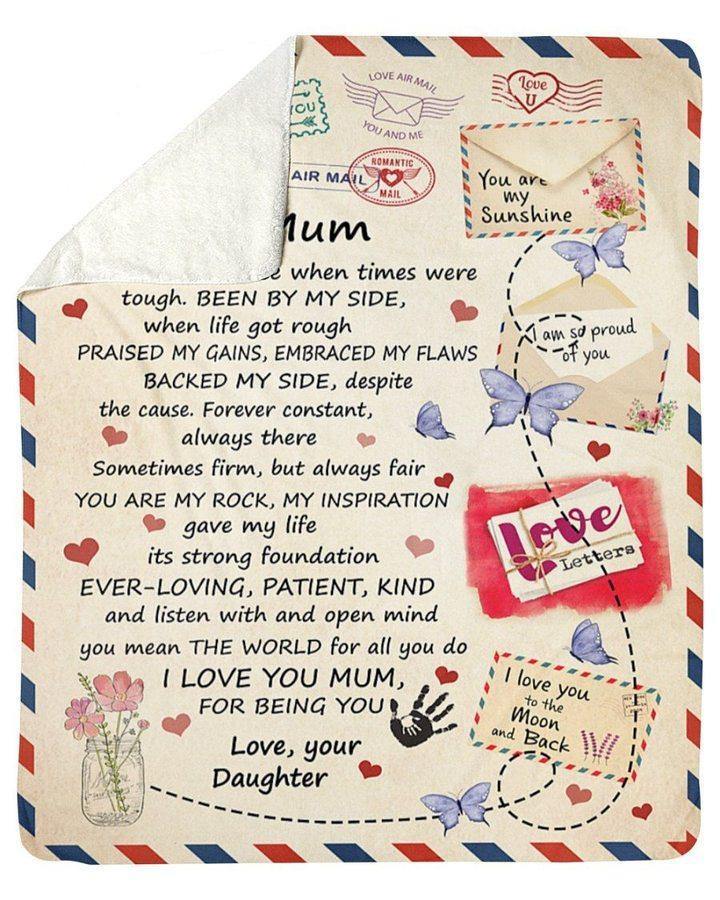 YOU
LOVE AIR MAIL
YOU AND ME
Love
U
AIR MAIL
ROMANTIC
MAIL
You are
my
Sunshine
Mum
when times were
tough. BEEN BY MY SIDE,
when life got rough
PRAISED MY GAINS, EMBRACED MY FLAWS
BACKED MY SIDE, despite
the cause. Forever constant,
always there
Sometimes firm, but always fair
YOU ARE MY ROCK, MY INSPIRATION
gave my life
its strong foundation
EVER-LOVING, PATIENT, KIND
and listen with and open mind
you mean THE WORLD for all you do
I LOVE YOU MUM,
FOR BEING YOU
Love, your
Daughter
I am so proud
of you
Love
Letters
I love you
to the
Moon
and Back